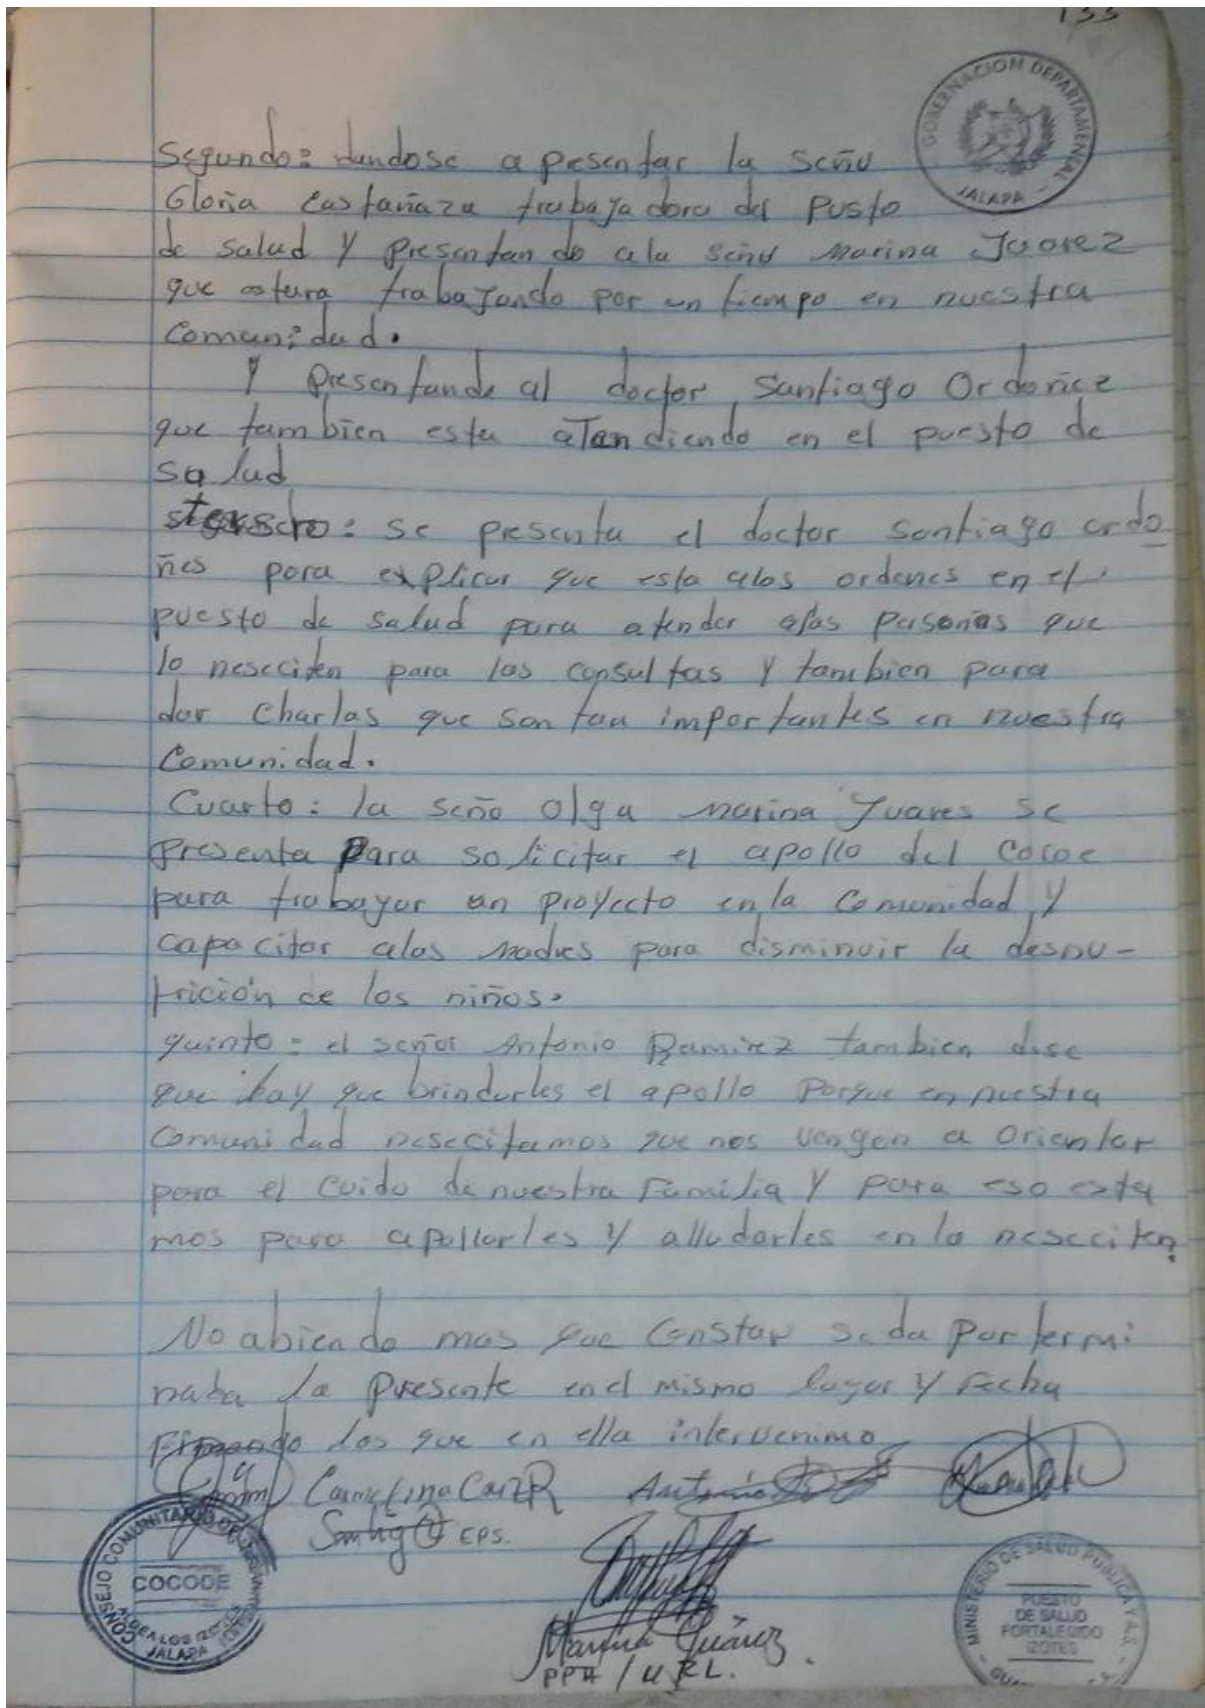 133
GOBERNACION DEPARTAMENTAL
JALAPA
Segundo: dandose a presentar la seño
Gloria Castañaza trabajadora del Pusto
de salud y presentando ala seño Marina Juarez
que estara trabajando por un tiempo en nuestra
Comunidad.
y presentando al doctor Santiago Ordoñez
que tambien esta atendiendo en el puesto de
salud
se presenta el doctor Santiago ordo
ñes para explicar que esta alas ordenes en el
puesto de salud para atender alas personas que
lo neseciten para las consultas y tambien para
dar Charlas que son tan importantes en nuestra
Comunidad.
Cuarto: la seño Olga Marina Juares se
presenta para solicitar el apollo del Cocoe
para trabayar un proyecto en la Comunidad y
capacitar alas madres para disminuir la desnu-
trición de los niños.
quinto: el señor Antonio Ramirez tambien dise
que hay que brindarles el apollo Porque en nuestra
Comunidad nesecitamos que nos vengan a Orientar
para el cuido de nuestra Familia y para eso esta
mos para apollarles y alludarles en lo neseciten.
No abiendo mas que Constar se da por termi
nada la presente en el mismo lugar y Fecha
Firmando los que en ella intervenimo
Antonio
EPS.
CONSEJO COMUNITARIO DE
COCODE
ALDEA LOS IZOTES
JALAPA
Marina Juárez
PPA / URL.
MINISTERIO DE SALUD PUBLICA Y A.S.
PUESTO
DE SALUD
FORTALECIDO
IZOTES